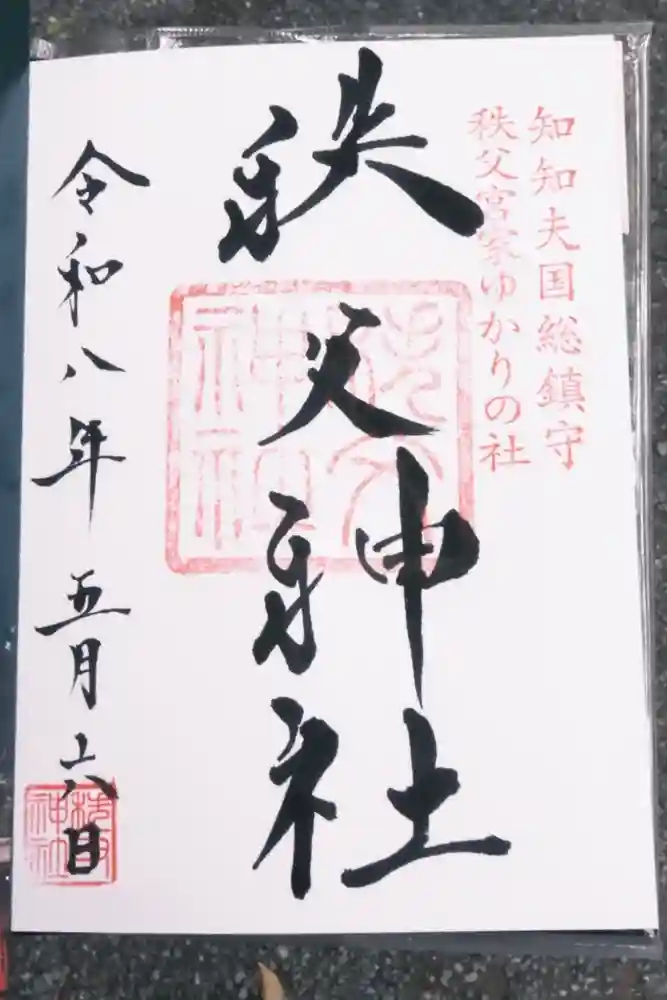 知知夫国総鎮守
秩父宮家ゆかりの社
秩父神社
秩父神社
令和八年 五月六日